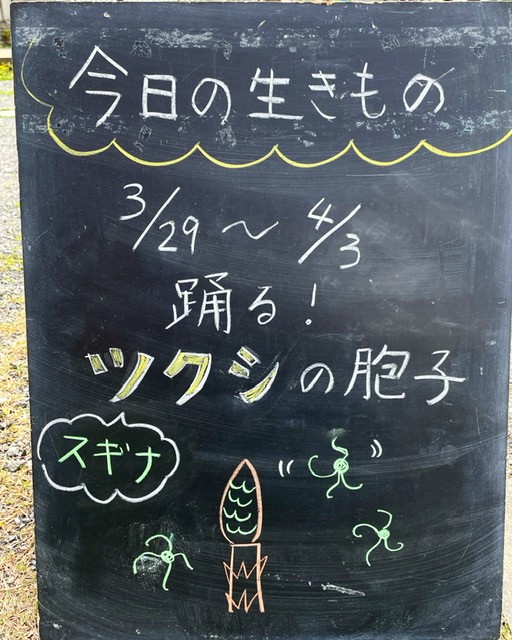 今日の生きもの
3/29～4/3
踊る！
ツクシの胞子
スギナ